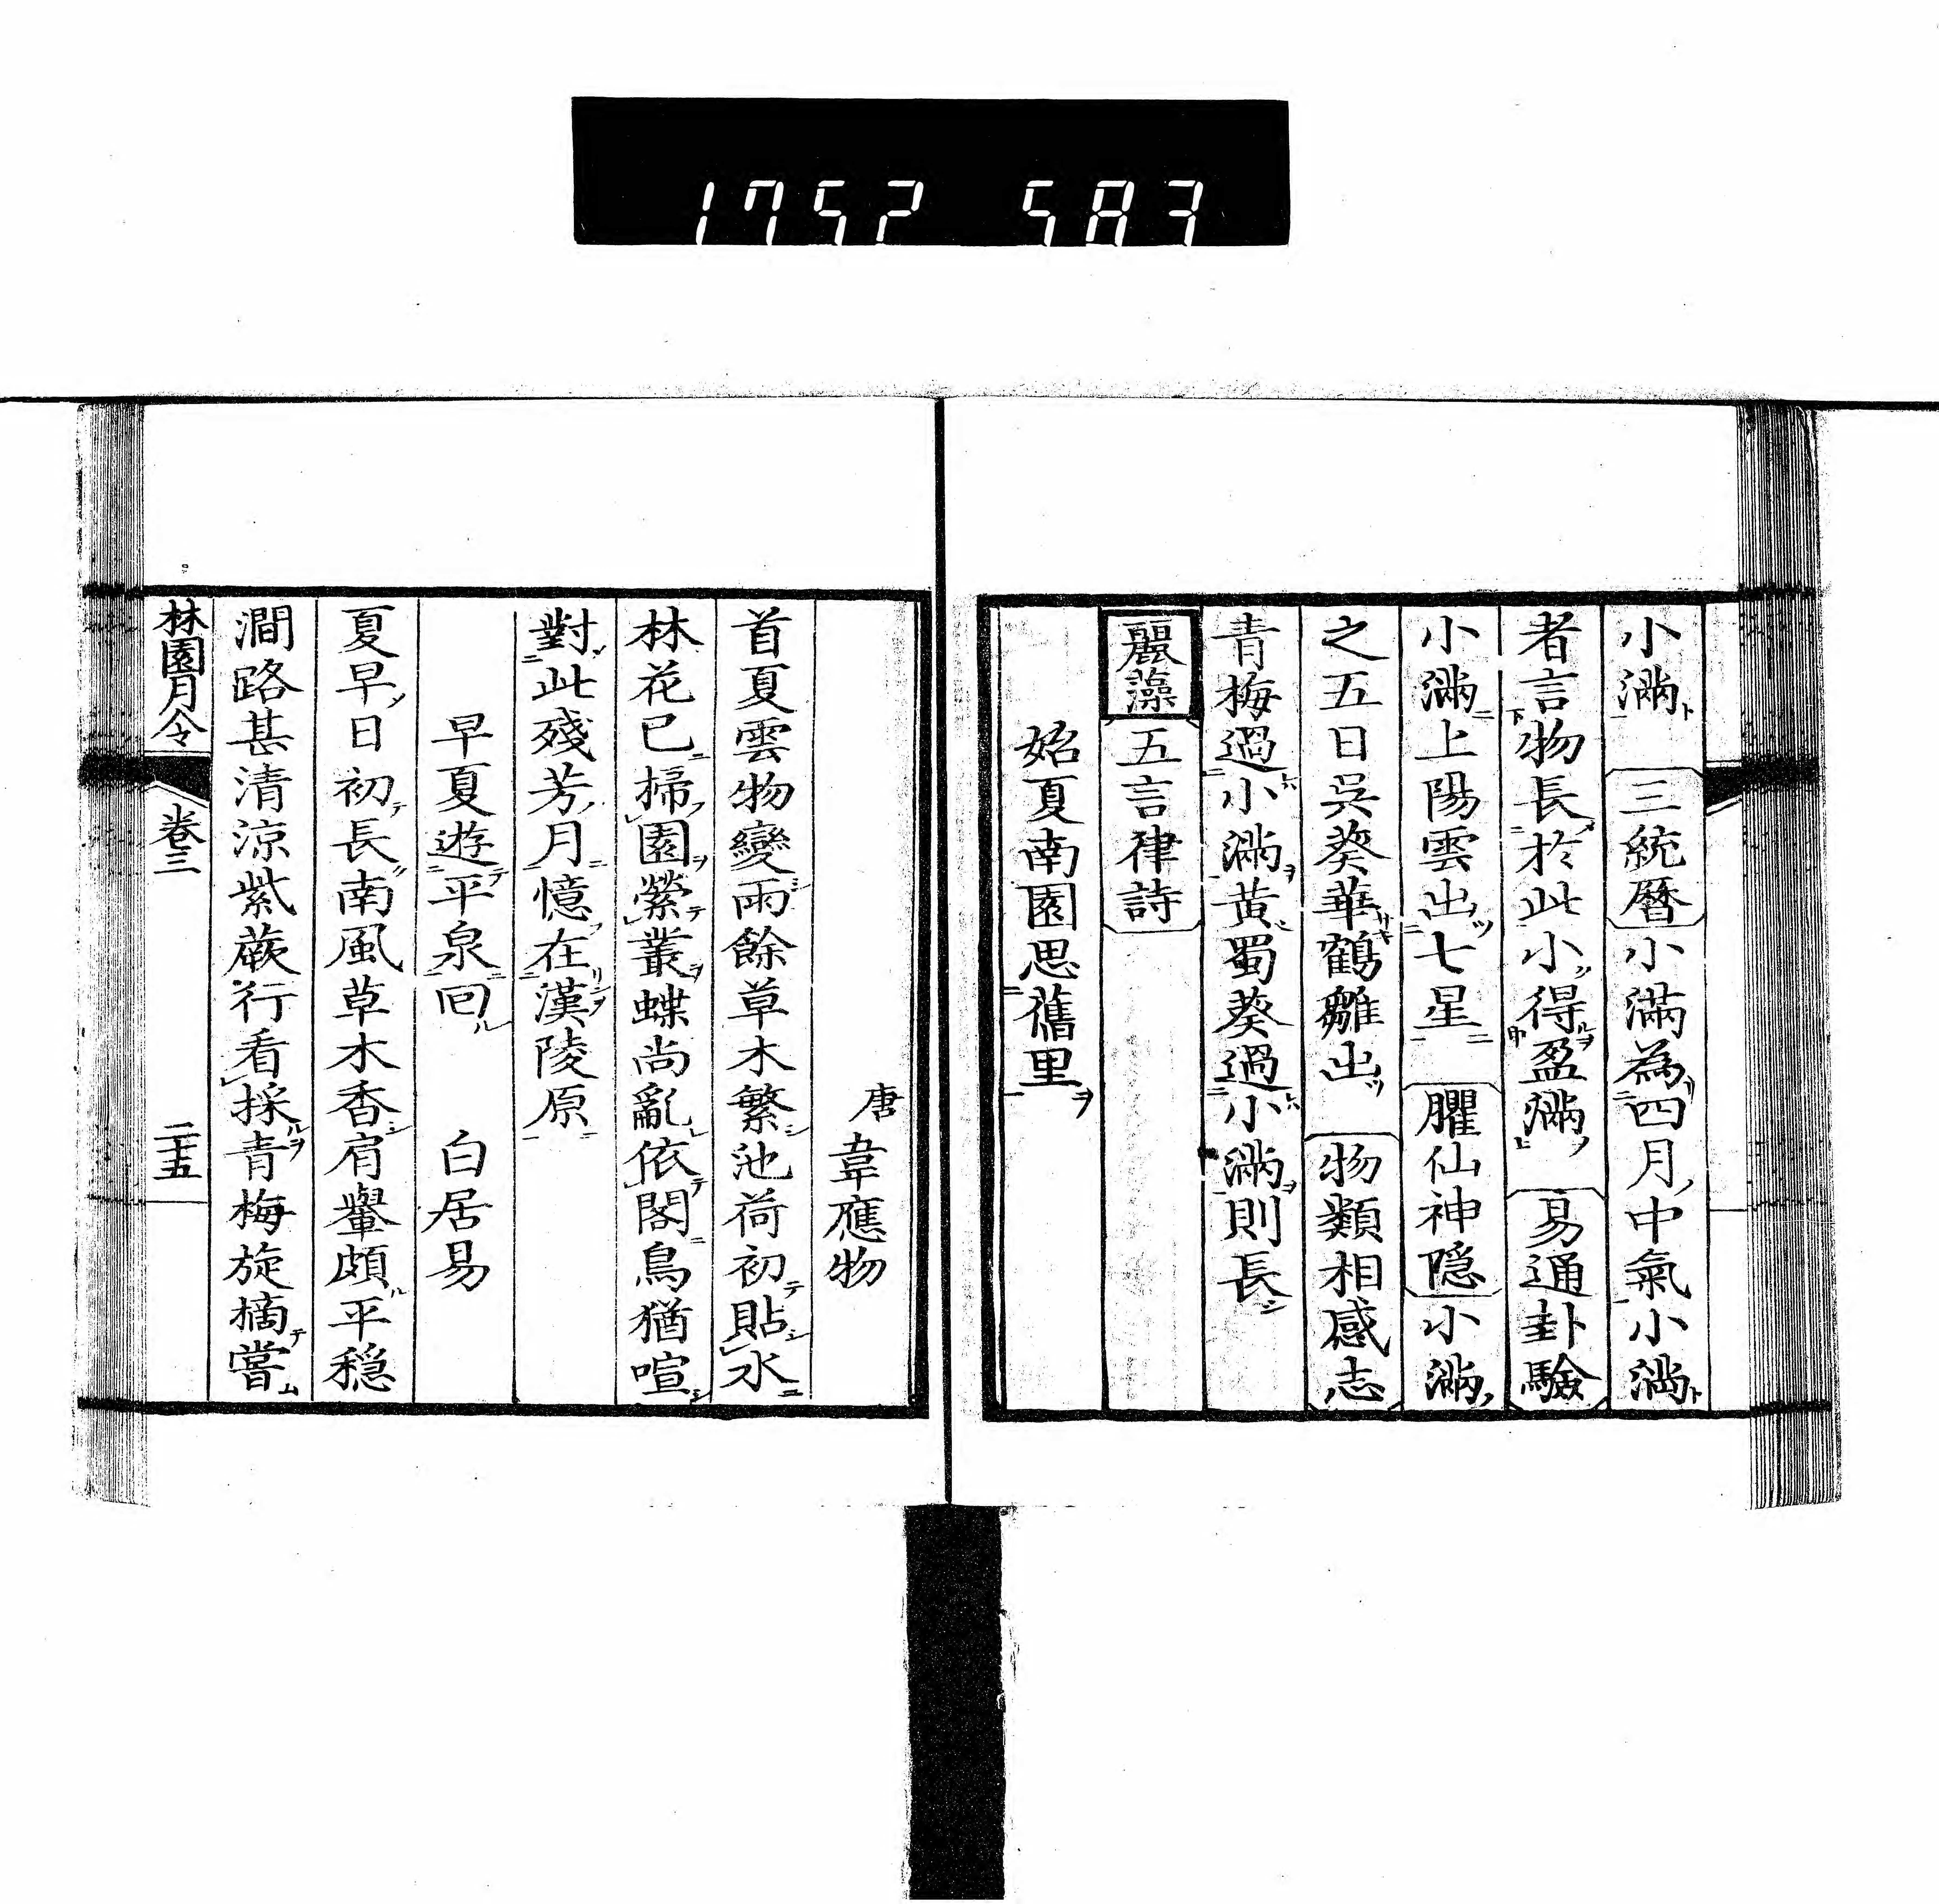 1752 583
小滿 三統曆 小滿為四月中氣小滿
者言物長於此小得盈滿 易通卦驗
小滿上陽雲出七星 臞仙神隱 小滿
之五日吳葵華鶴雛出 物類相感志
青梅過小滿黃蜀葵過小滿則長
麗藻 五言律詩
始夏南園思舊里
唐 韋應物
首夏雲物變雨餘草木繁池荷初貼水
林花已掃園縈叢蝶尚亂依閣鳥猶喧
對此殘芳月憶在漢陵原
早夏遊平泉回 白居易
夏早日初長南風草木香肩轝頗平穩
澗路甚清涼紫蕨行看採青梅旋摘嘗
林園月令 卷三 二十五